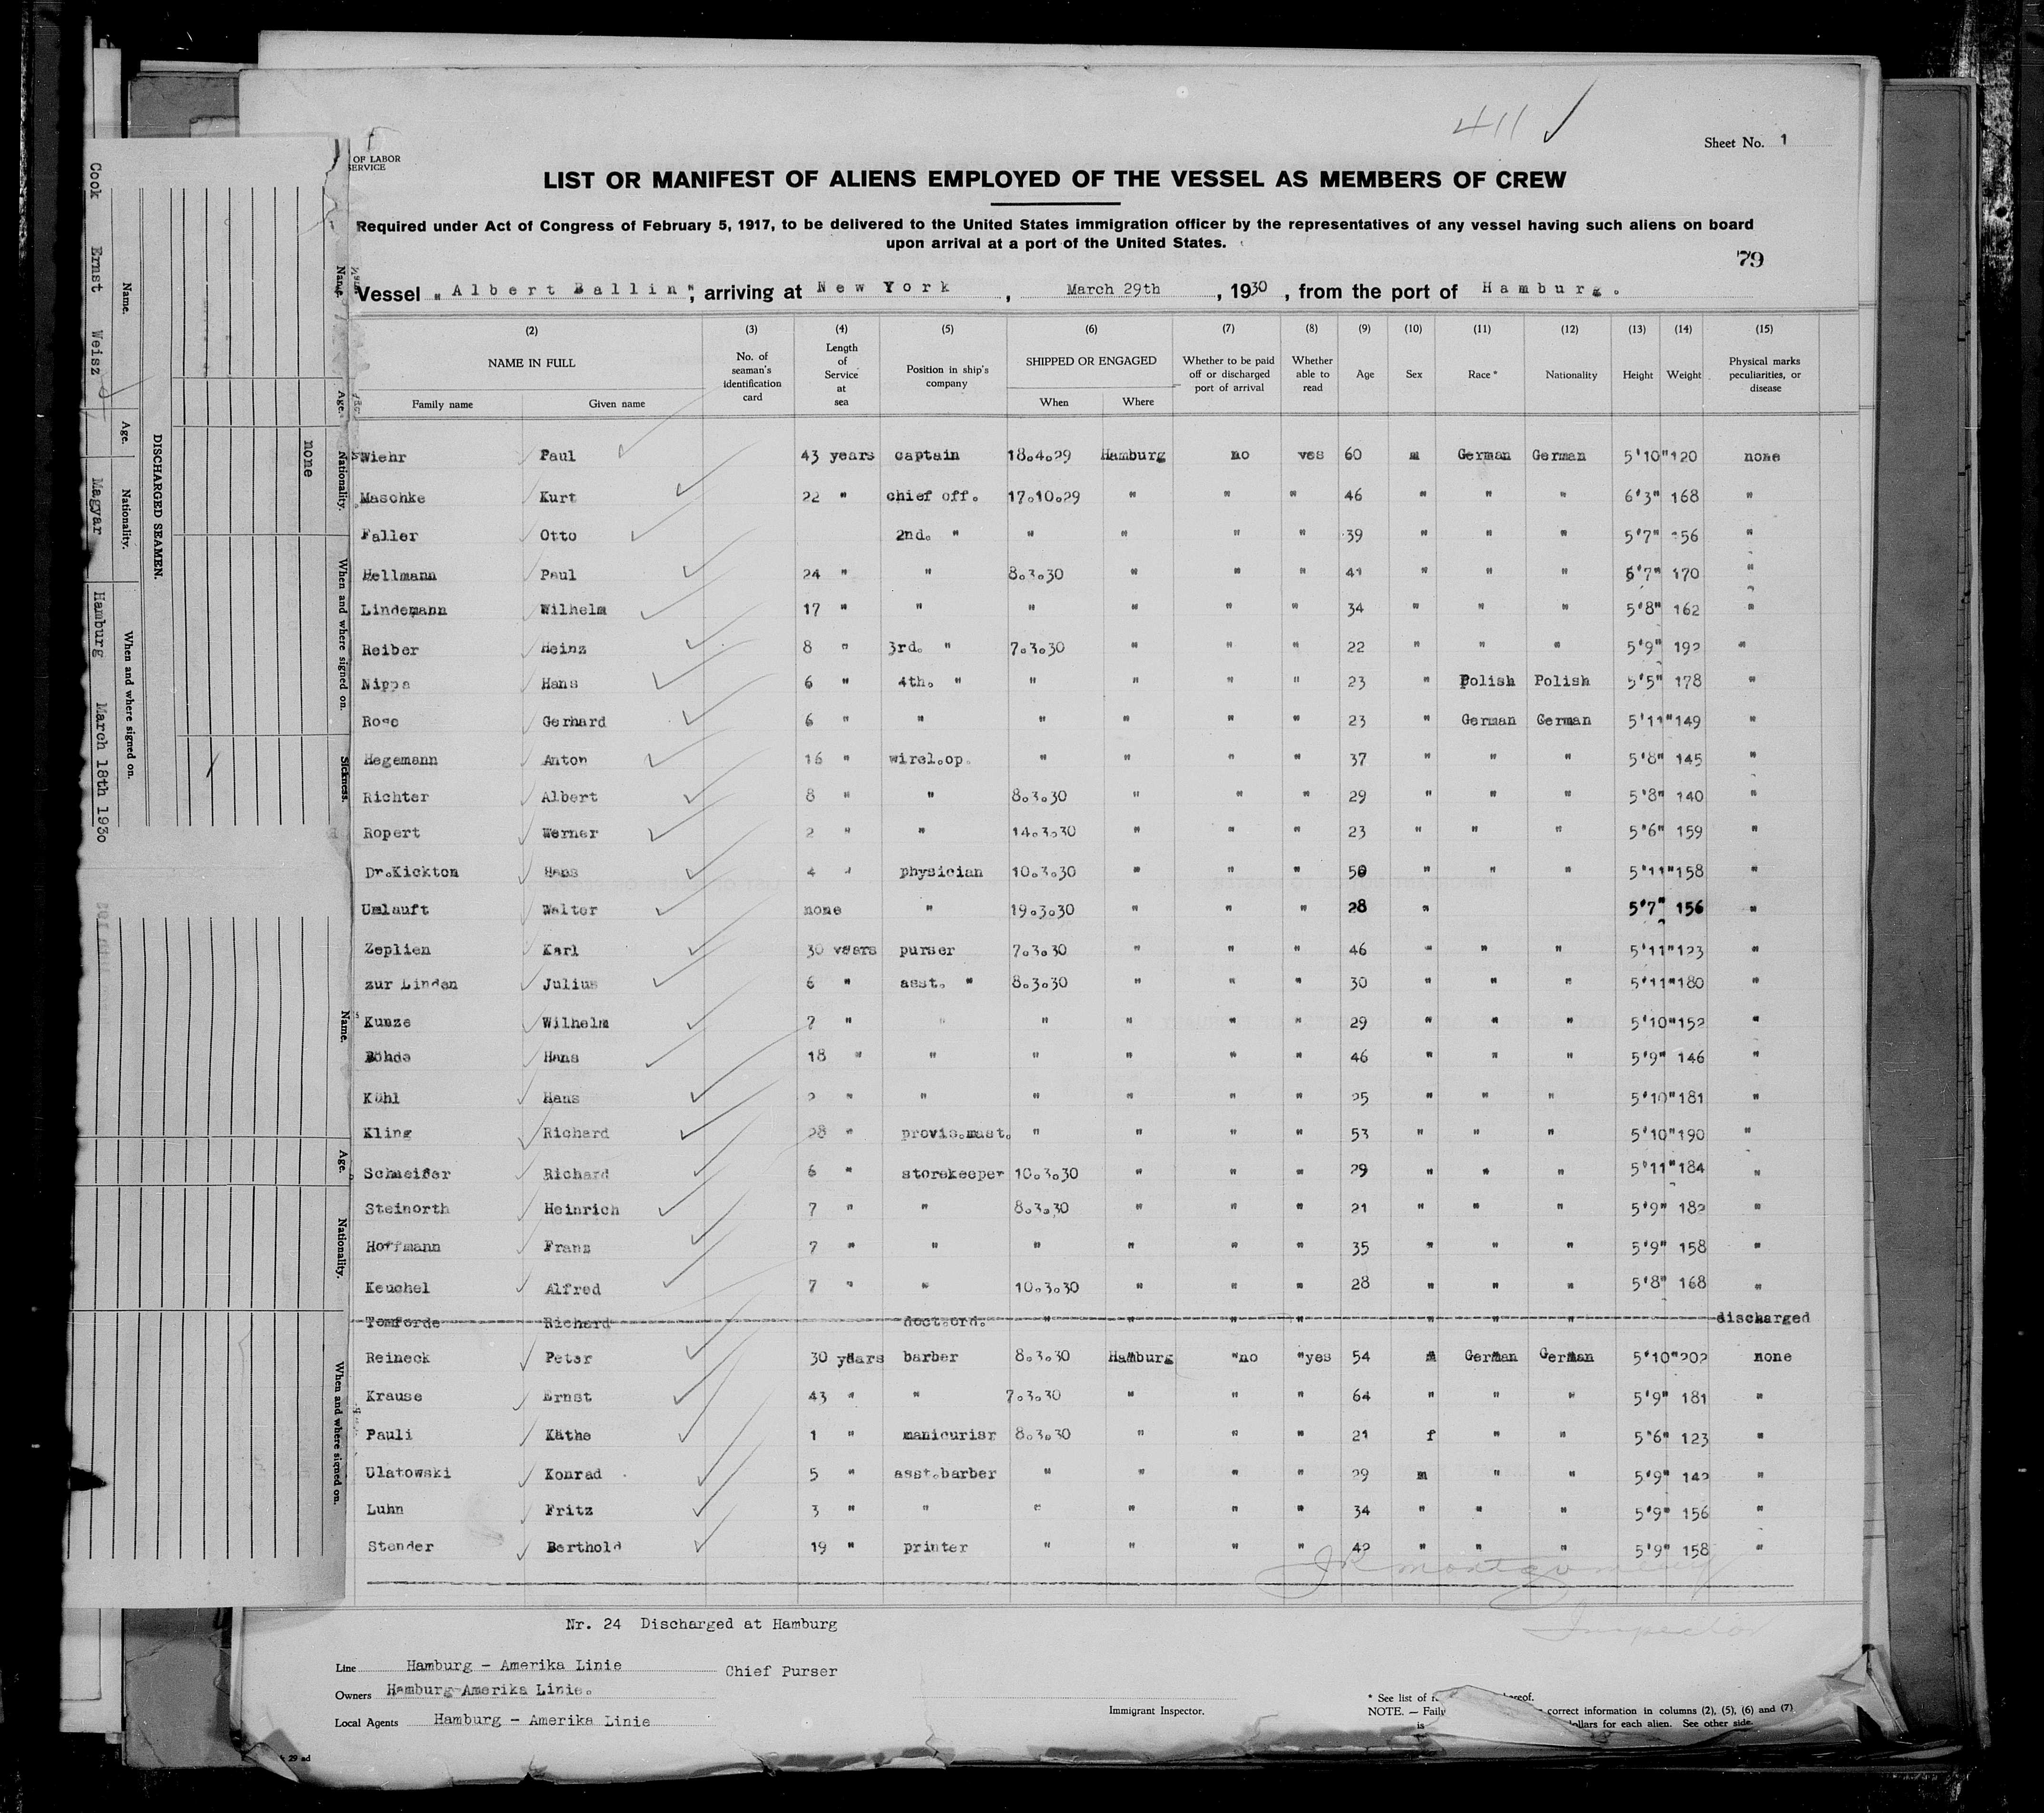 411 ✓
Sheet No. 1
OF LABOR
SERVICE
LIST OR MANIFEST OF ALIENS EMPLOYED OF THE VESSEL AS MEMBERS OF CREW
Required under Act of Congress of February 5, 1917, to be delivered to the United States immigration officer by the representatives of any vessel having such aliens on board
upon arrival at a port of the United States.
79
Vessel "Albert Ballin", arriving at New York, March 29th, 1930, from the port of Hamburg.
(2) (3) (4) (5) (6) (7) (8) (9) (10) (11) (12) (13) (14) (15)
NAME IN FULL No. of seaman's identification card Length of Service at sea Position in ship's company SHIPPED OR ENGAGED Whether to be paid off or discharged port of arrival Whether able to read Age Sex Race * Nationality Height Weight Physical marks peculiarities, or disease
Family name Given name When Where
Wiehr Paul 43 years captain 18.4.29 Hamburg no yes 60 m German German 5'10" 120 none
Maschke Kurt 22 " chief off. 17.10.29 " " " 46 " " " 6'3" 168 "
Faller Otto 2nd. " " " " " 39 " " " 5'7" 156 "
Hellmann Paul 24 " " 8.3.30 " " " 41 " " " 5'7" 170 "
Lindemann Wilhelm 17 " " " " " " 34 " " " 5'8" 162 "
Reiber Heinz 8 " 3rd. " 7.3.30 " " " 22 " " " 5'9" 192 "
Nippa Hans 6 " 4th. " " " " " 23 " Polish Polish 5'5" 178 "
Rose Gerhard 6 " " " " " " 23 " German German 5'11" 149 "
Hegemann Anton 16 " wirel.op. " " " " 37 " " " 5'8" 145 "
Richter Albert 8 " " 8.3.30 " " " 29 " " " 5'8" 140 "
Ropert Werner 2 " " 14.3.30 " " " 23 " " " 5'6" 159 "
Dr.Kickton Hans 4 " physician 10.3.30 " " " 50 " " " 5'11" 158 "
Umlauft Walter none " 19.3.30 " " " 28 " 5'7" 156 "
Zeplien Karl 30 years purser 7.3.30 " " " 46 " " " 5'11" 123 "
zur Linden Julius 6 " asst. " 8.3.30 " " " 30 " " " 5'11" 180 "
Kunze Wilhelm 7 " " " " " " 29 " " " 5'10" 152 "
Böhde Hans 18 " " " " " " 46 " " " 5'9" 146 "
Kühl Hans 2 " " " " " " 25 " " " 5'10" 181 "
Kling Richard 28 " provis.mast. " " " " 53 " " " 5'10" 190 "
Schmeißer Richard 6 " storekeeper 10.3.30 " " " 29 " " " 5'11" 184 "
Steinorth Heinrich 7 " " 8.3.30 " " " 21 " " " 5'9" 182 "
Hoffmann Franz 7 " " " " " " 35 " " " 5'9" 158 "
Keuchel Alfred 7 " " 10.3.30 " " " 28 " " " 5'8" 168 "
Tomforde Richard doct.ord. " " " " " " " discharged
Reineck Peter 30 years barber 8.3.30 Hamburg no yes 54 m German German 5'10" 202 none
Krause Ernst 43 " " 7.3.30 " " " 64 " " " 5'9" 181 "
Pauli Käthe 1 " manicurisr 8.3.30 " " " 21 f " " 5'6" 123 "
Ulatowski Konrad 5 " asst.barber " " " " 29 m " " 5'9" 142 "
Luhn Fritz 3 " " " " " " 34 " " " 5'9" 156 "
Stender Berthold 19 " printer " " " " 42 " " " 5'9" 158 "
JR Montgomery
Inspector
Nr. 24 Discharged at Hamburg
Line Hamburg - Amerika Linie
Chief Purser
Owners Hamburg-Amerika Linie.
Local Agents Hamburg - Amerika Linie
Immigrant Inspector.
* See list of hereof.
NOTE. — correct information in columns (2), (5), (6) and (7)
is dollars for each alien. See other side.
29 ad
DISCHARGED SEAMEN.
Name. Age. Nationality. When and where signed on.
Cook Ernst Weisz Magyar Hamburg March 18th 1930
none
Name. Age. Nationality. When and where signed on. Sickness.
Name. Age. Nationality. When and where signed on.